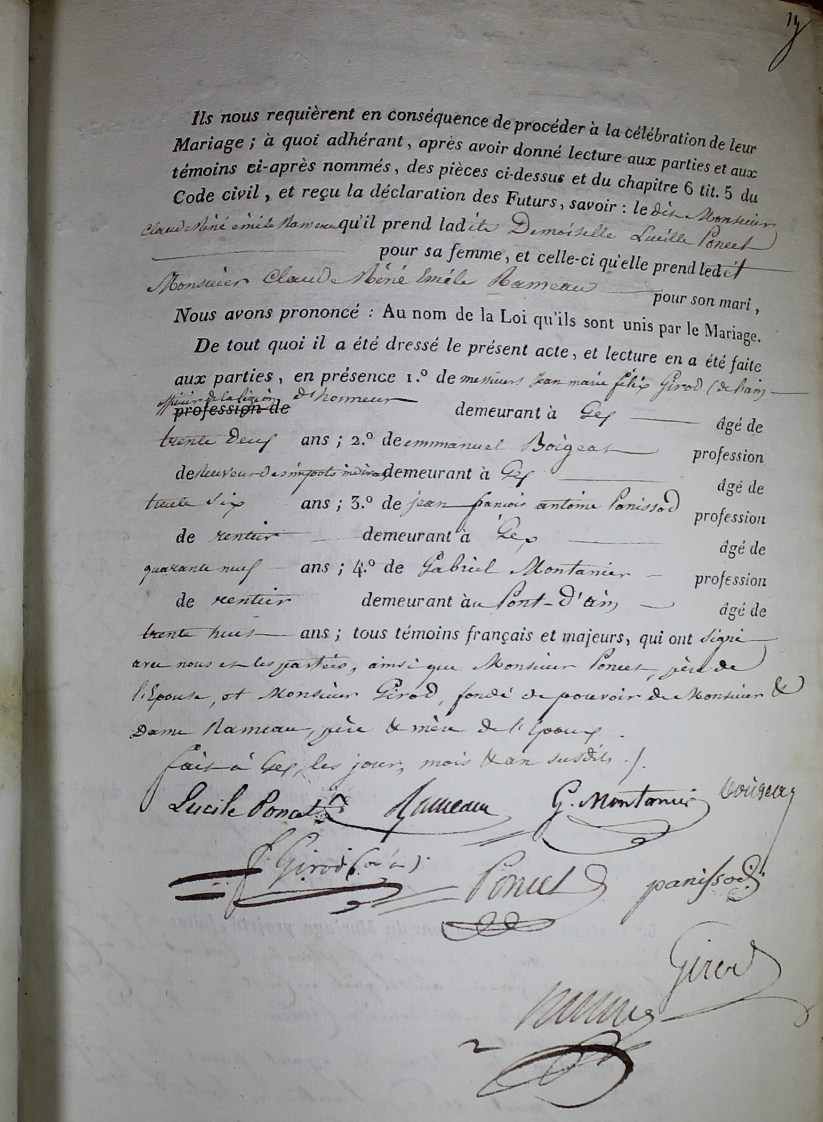 19
Ils nous requièrent en conséquence de procéder à la célébration de leur
Mariage ; à quoi adhérant, après avoir donné lecture aux parties et aux
témoins ci-après nommés, des pièces ci-dessus et du chapitre 6 tit. 5 du
Code civil, et reçu la déclaration des Futurs, savoir : le dit Monsieur
Claude Réné émile Rameau qu'il prend ladite Demoiselle Lucille Poncet
pour sa femme, et celle-ci qu'elle prend ledit
Monsieur Claude Réné Emile Rameau pour son mari,
Nous avons prononcé : Au nom de la Loi qu'ils sont unis par le Mariage.
De tout quoi il a été dressé le présent acte, et lecture en a été faite
aux parties, en présence 1.º de messieurs Jean marie félix Girod (de l'ain
officier de la légion d'honneur
profession de demeurant à Gex âgé de
trente deux ans ; 2.º de emmanuel Boigeat profession
de receveur des impots indirects demeurant à Gex âgé de
trente six ans ; 3.º de jean françois antoine Panissod profession
de rentier demeurant à Gex âgé de
quarante neuf ans ; 4.º de Gabriel Montanier profession
de rentier demeurant à au Pont-d'ain âgé de
trente huit ans ; tous témoins français et majeurs, qui ont signé
avec nous et les parties, ainsi que Monsieur Poncet, père de
l'Epouse, et Monsieur Girod, fondé de pouvoir de Monsieur &
Dame Rameau, père & mère de l'Epoux.
fait à Gex, les jour, mois & an susdits ./.
Lucile Poncet Rameau G. Montanier Boigeat
f. Girod (de l'ain) Poncet panissod
Girod